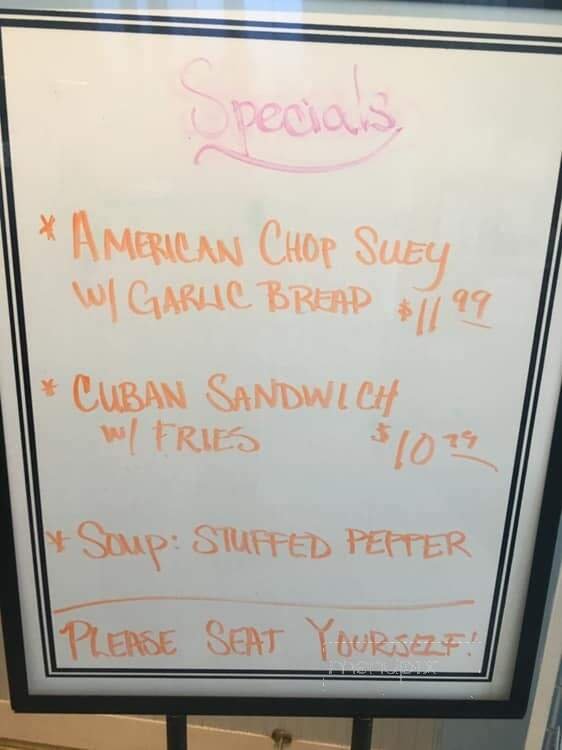 Specials
* AMERICAN CHOP SUEY
W/ GARLIC BREAD $11 99
* CUBAN SANDWICH
W/ FRIES $10
* SOUP: STUFFED PEPPER
PLEASE SEAT YOURSELF!
menupix